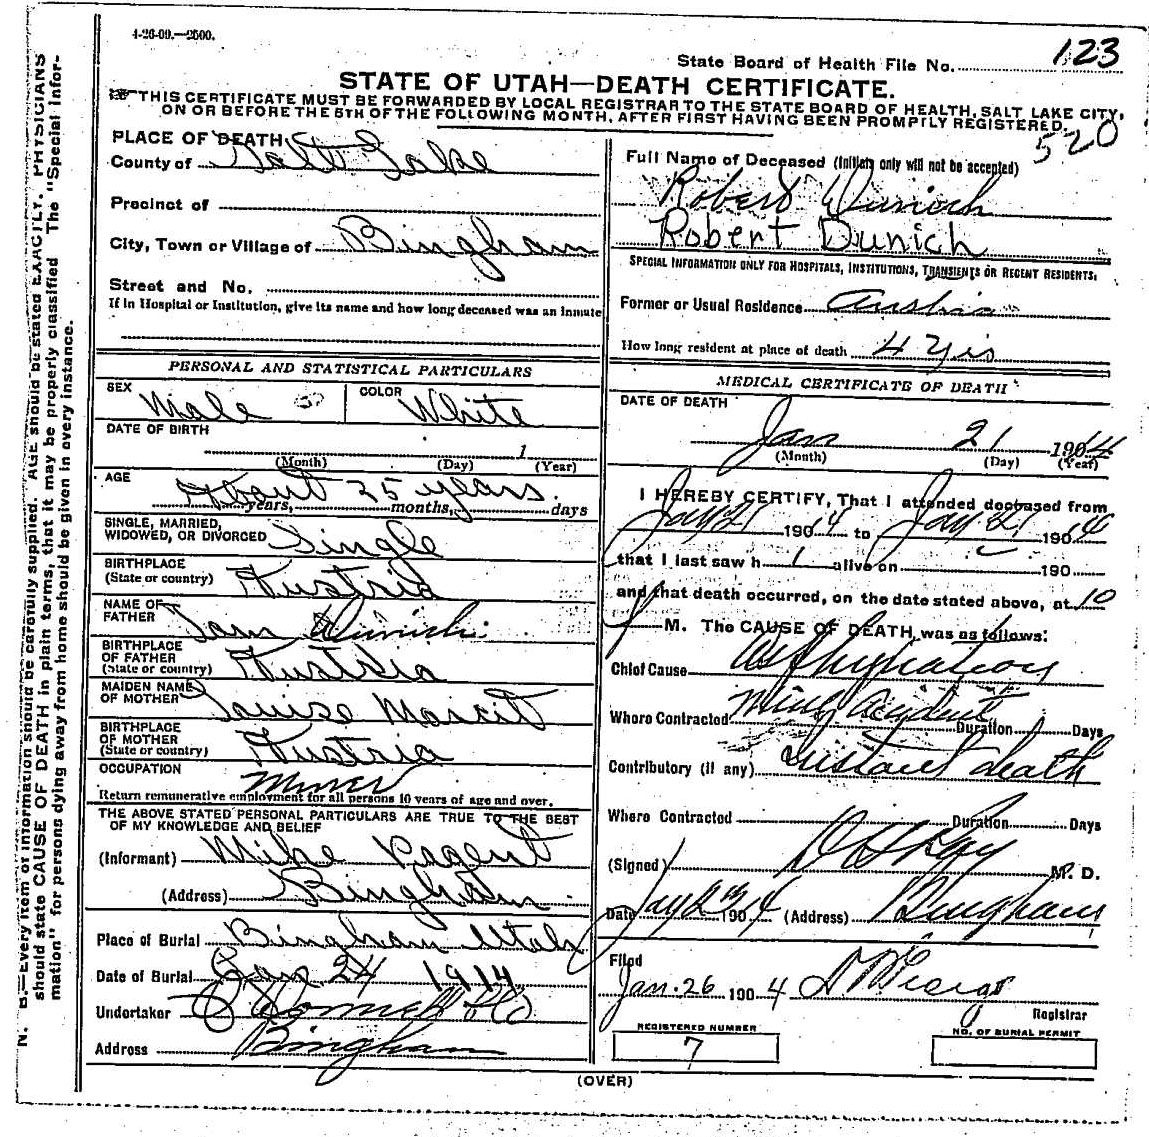 4-26-09.—2500.
State Board of Health File No. 123
STATE OF UTAH—DEATH CERTIFICATE.
THIS CERTIFICATE MUST BE FORWARDED BY LOCAL REGISTRAR TO THE STATE BOARD OF HEALTH, SALT LAKE CITY,
ON OR BEFORE THE 5TH OF THE FOLLOWING MONTH, AFTER FIRST HAVING BEEN PROMPTLY REGISTERED.
520
PLACE OF DEATH
County of Salt Lake
Precinct of
City, Town or Village of Bingham
Street and No.
If in Hospital or Institution, give its name and how long deceased was an inmate
PERSONAL AND STATISTICAL PARTICULARS
SEX Male COLOR White
DATE OF BIRTH
1
(Month) (Day) (Year)
AGE About 25 years.
years, months, days
SINGLE, MARRIED,
WIDOWED, OR DIVORCED Single
BIRTHPLACE
(State or country) Austria
NAME OF
FATHER Sam Dunich
BIRTHPLACE
OF FATHER
(State or country) Austria
MAIDEN NAME
OF MOTHER Louise
BIRTHPLACE
OF MOTHER
(State or country) Austria
OCCUPATION Miner
Return remunerative employment for all persons 10 years of age and over.
THE ABOVE STATED PERSONAL PARTICULARS ARE TRUE TO THE BEST
OF MY KNOWLEDGE AND BELIEF
(Informant) Mike
(Address) Bingham
Place of Burial Bingham Utah
Date of Burial Jan 24 1914
Undertaker O Donnell & Co
Address Bingham
Full Name of Deceased (Initials only will not be accepted)
Robert Dunich
Robert Dunich
SPECIAL INFORMATION ONLY FOR HOSPITALS, INSTITUTIONS, TRANSIENTS OR RECENT RESIDENTS:
Former or Usual Residence Austria
How long resident at place of death 4 yrs
MEDICAL CERTIFICATE OF DEATH
DATE OF DEATH
Jan 21 1914
(Month) (Day) (Year)
I HEREBY CERTIFY, That I attended deceased from
Jan 21 1904 to Jan 21 1904
that I last saw h alive on 190
and that death occurred, on the date stated above, at 10
M. The CAUSE OF DEATH was as follows:
Chief Cause Asphyxiation
Where Contracted Mine accident Duration Days
Contributory (if any) Instant death
Where Contracted Duration Days
(Signed) M. D.
Date 1904 (Address) Bingham
Filed
Jan. 26 1904
Registrar
REGISTERED NUMBER
7
NO. OF BURIAL PERMIT
(OVER)
N. B.—Every item of information should be carefully supplied. AGE should be stated EXACTLY. PHYSICIANS
should state CAUSE OF DEATH in plain terms, that it may be properly classified. The "Special Infor-
mation" for persons dying away from home should be given in every instance.